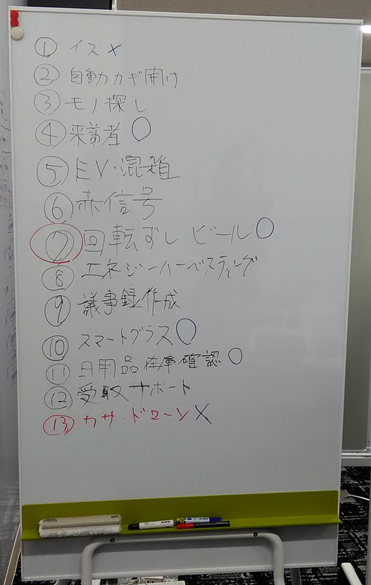 ① イス ×
② 自動カギ開け
③ モノ探し
④ 来訪者 ○
⑤ EV・混雑
⑥ 赤信号
⑦ 回転ずし・ビール ○
⑧ エネジーハーベスティング
⑨ 議事録作成
⑩ スマートグラス ○
⑪ 日用品在庫確認 ○
⑫ 受取サポート
⑬ カサ・ドローン ×